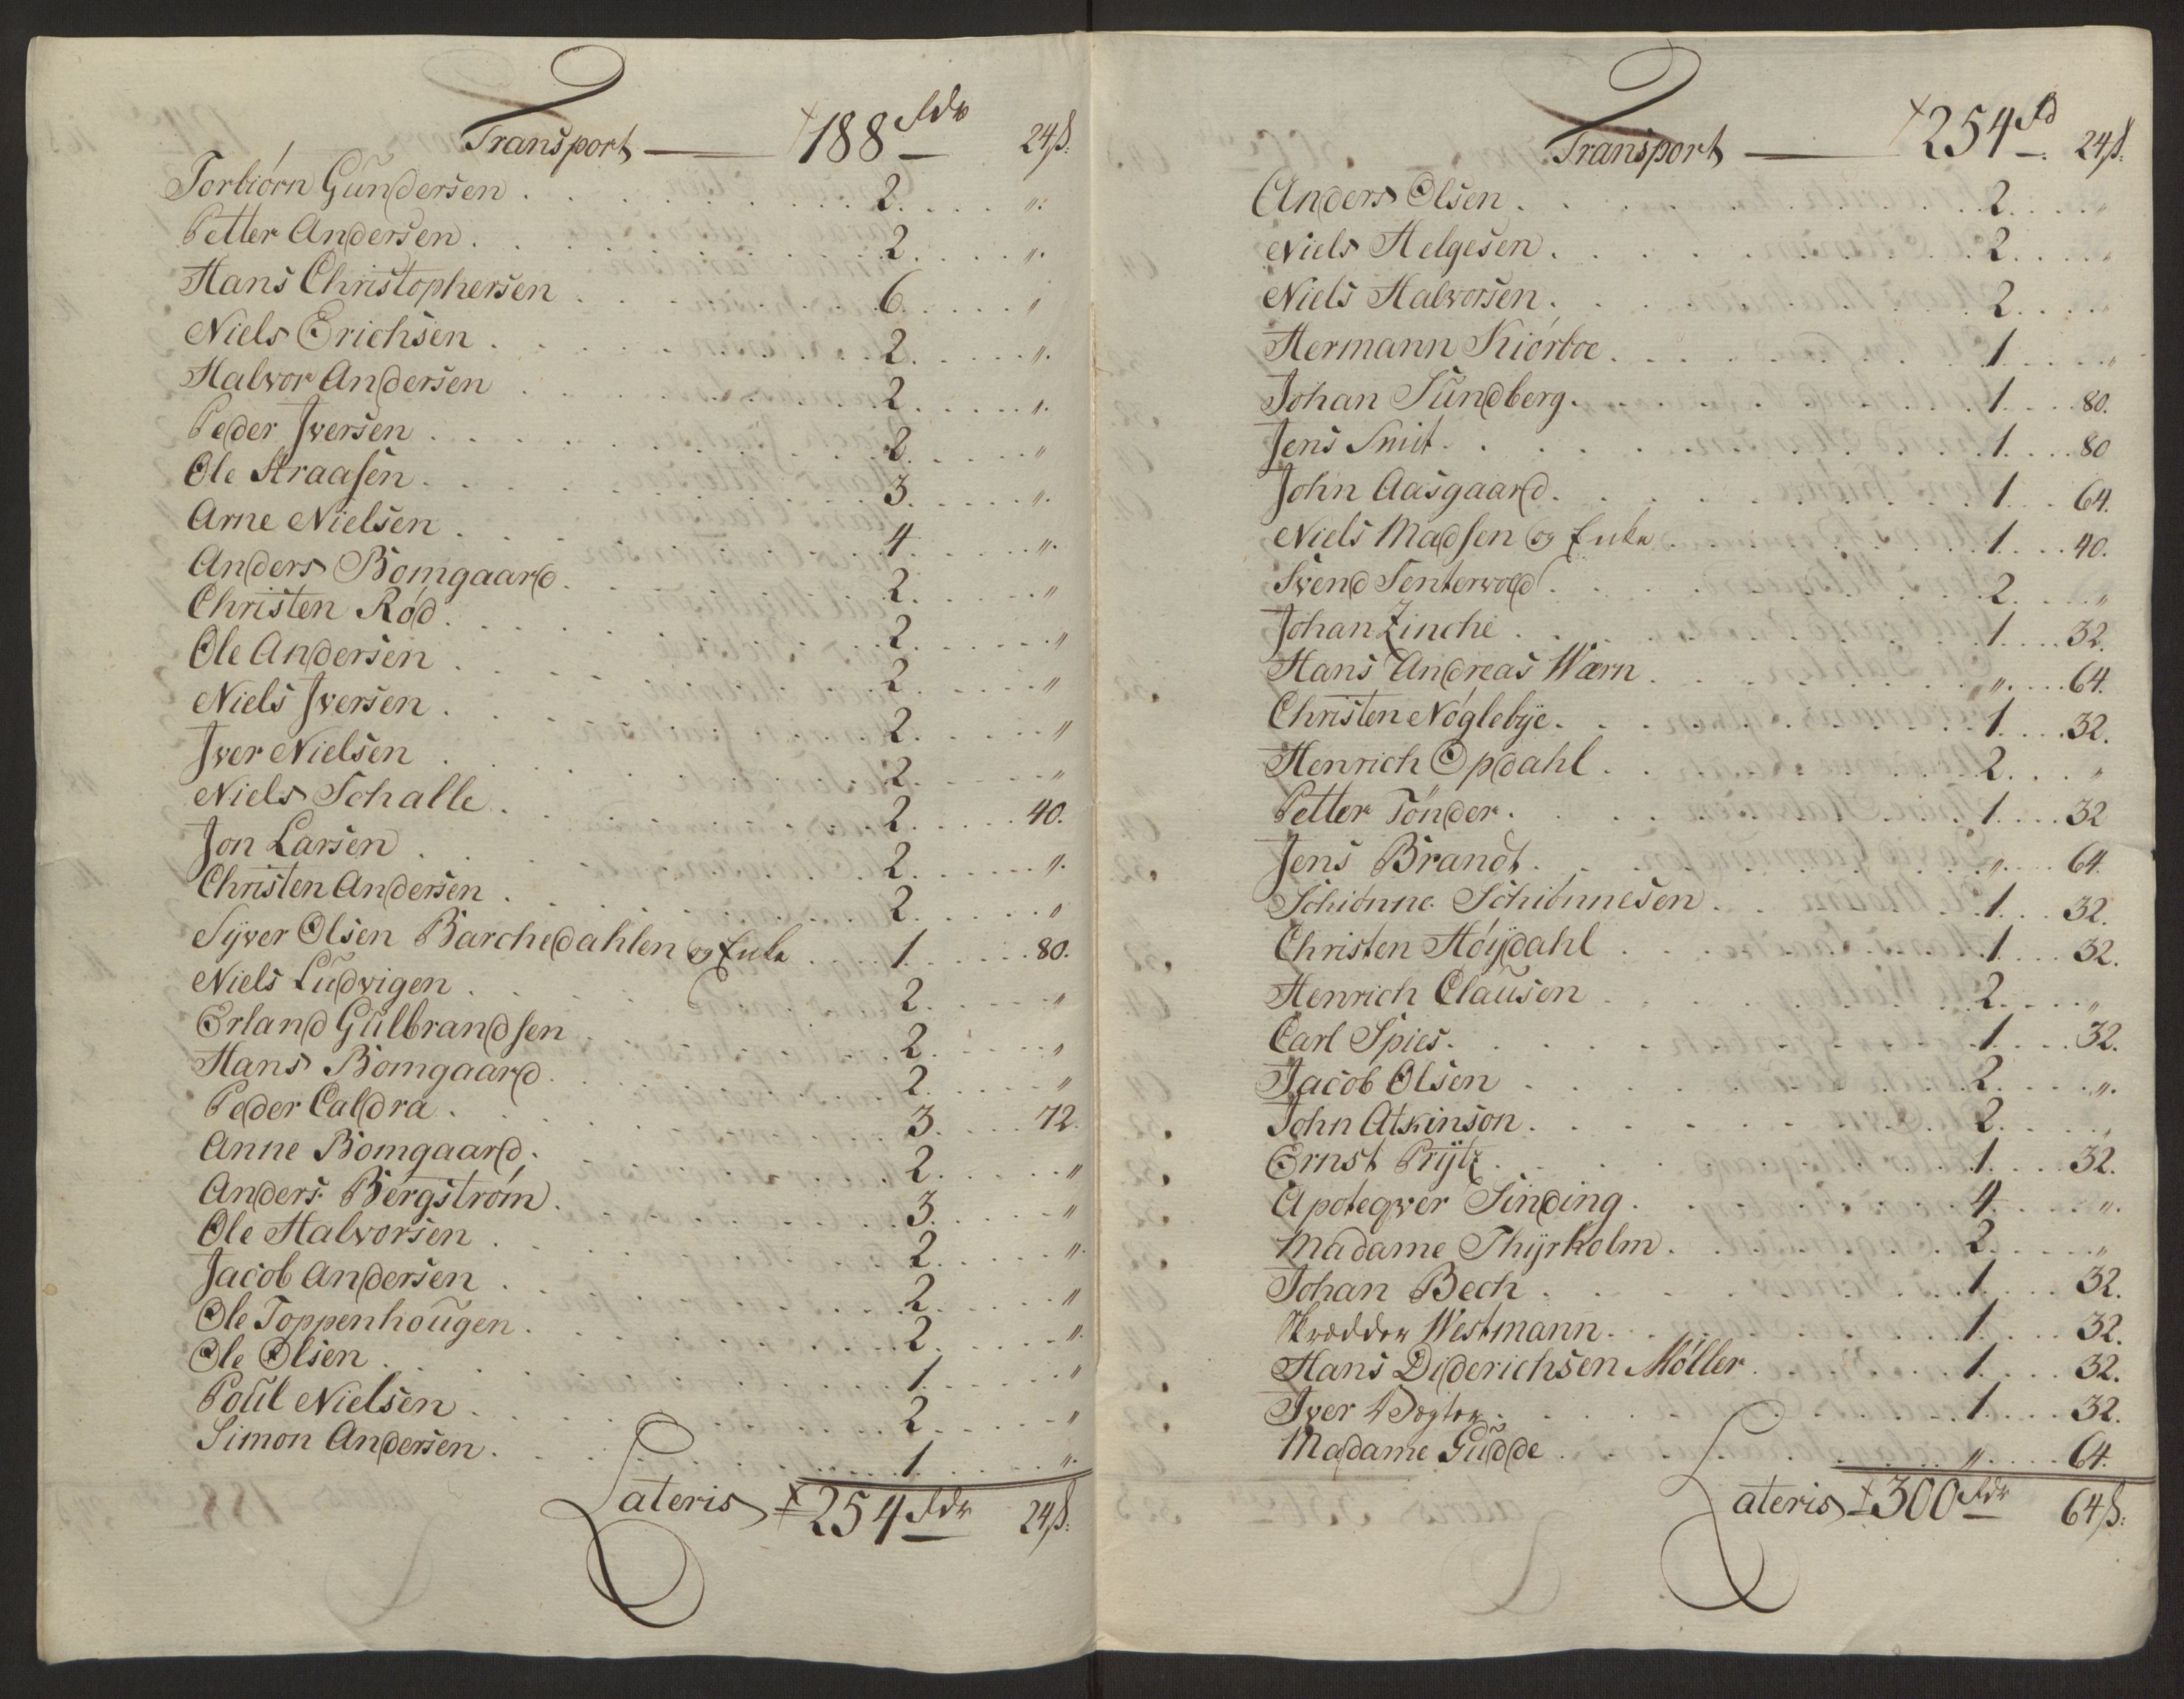 Transport — 188 rdr 24 ß.
Torbiørn Gundersen . . . 2. . . . ".
Petter Andersen . . . 2. . . . ".
Hans Christophersen . . . 6. . . . "
Niels Erichsen . . . 2. . . . ".
Halvor Andersen . . . 2. . . . ".
Peder Iversen . . . 2. . . . "
Ole Straasen . . . 3. . . . ".
Arne Nielsen . . . 4. . . . ".
Anders Bomgaard . . . 2. . . . "
Christen Rød . . . 2. . . . "
Ole Andersen . . . 2. . . . "
Niels Iversen . . . 2. . . . "
Iver Nielsen . . . 2. . . . "
Niels Schalle . . . 2. . . . 40.
Jon Larsen . . . 2. . . . ".
Christen Andersen . . . 2. . . . "
Syver Olsen Barchedahlen og Enke . . . 1. . . . 80.
Niels Ludvigen . . . 2. . . . "
Erland Gulbrandsen . . . 2. . . . "
Hans Bomgaard . . . 2. . . . "
Peder Caldra . . . 3. . . . 72.
Anne Bomgaard . . . 2. . . . "
Anders Bergstrøm . . . 3. . . . "
Ole Halvorsen . . . 2. . . . ".
Jacob Andersen . . . 2. . . . "
Ole Toppenhougen . . . 2. . . . ".
Ole Olsen . . . 1. . . . "
Poul Nielsen . . . 2. . . . "
Simon Andersen . . . 1. . . . ".
Lateris 254 rdr 24 ß.
Transport — 254 rd 24 ß.
Anders Olsen . . . 2. . . . "
Niels Helgesen . . . 2. . . . "
Niels Halvorsen . . . 2. . . . "
Hermann Kiørboe . . . 1. . . . "
Johan Sundberg . . . 1. . . . 80.
Jens Smit . . . 1. . . . 80
John Aasgaard . . . 1. . . . 64.
Niels Madsen og Enke . . . 1. . . . 40.
Svend Tentervold . . . 2. . . . "
Johan Zinche . . . 1. . . . 32.
Hans Andreas Wærn . . . ". . . . 64.
Christen Nøglebye . . . 1. . . . 32.
Henrich Opdahl . . . 2. . . . "
Petter Tønder . . . 1. . . . 32
Jens Brandt . . . ". . . . 64.
Schiønne Schiønnesen . . . 1. . . . 32.
Christen Høydahl . . . 1. . . . 32.
Henrich Clausen . . . 2. . . . "
Carl Spies . . . 1. . . . 32.
Jacob Olsen . . . 2. . . . ".
John Atkinson . . . 2. . . . "
Ernst Prytz . . . 1. . . . 32.
Apoteqver Sinding . . . 4. . . . ".
Madame Thyrholm . . . 2. . . . "
Johan Bech . . . 1. . . . 32.
Skrædder Westmann . . . 1. . . . 32.
Hans Diderichsen Møller . . . 1. . . . 32.
Iver Vogter . . . 1. . . . 32.
Madame Gudde . . . ". . . . 64.
Lateris 300 rdr 64 ß.